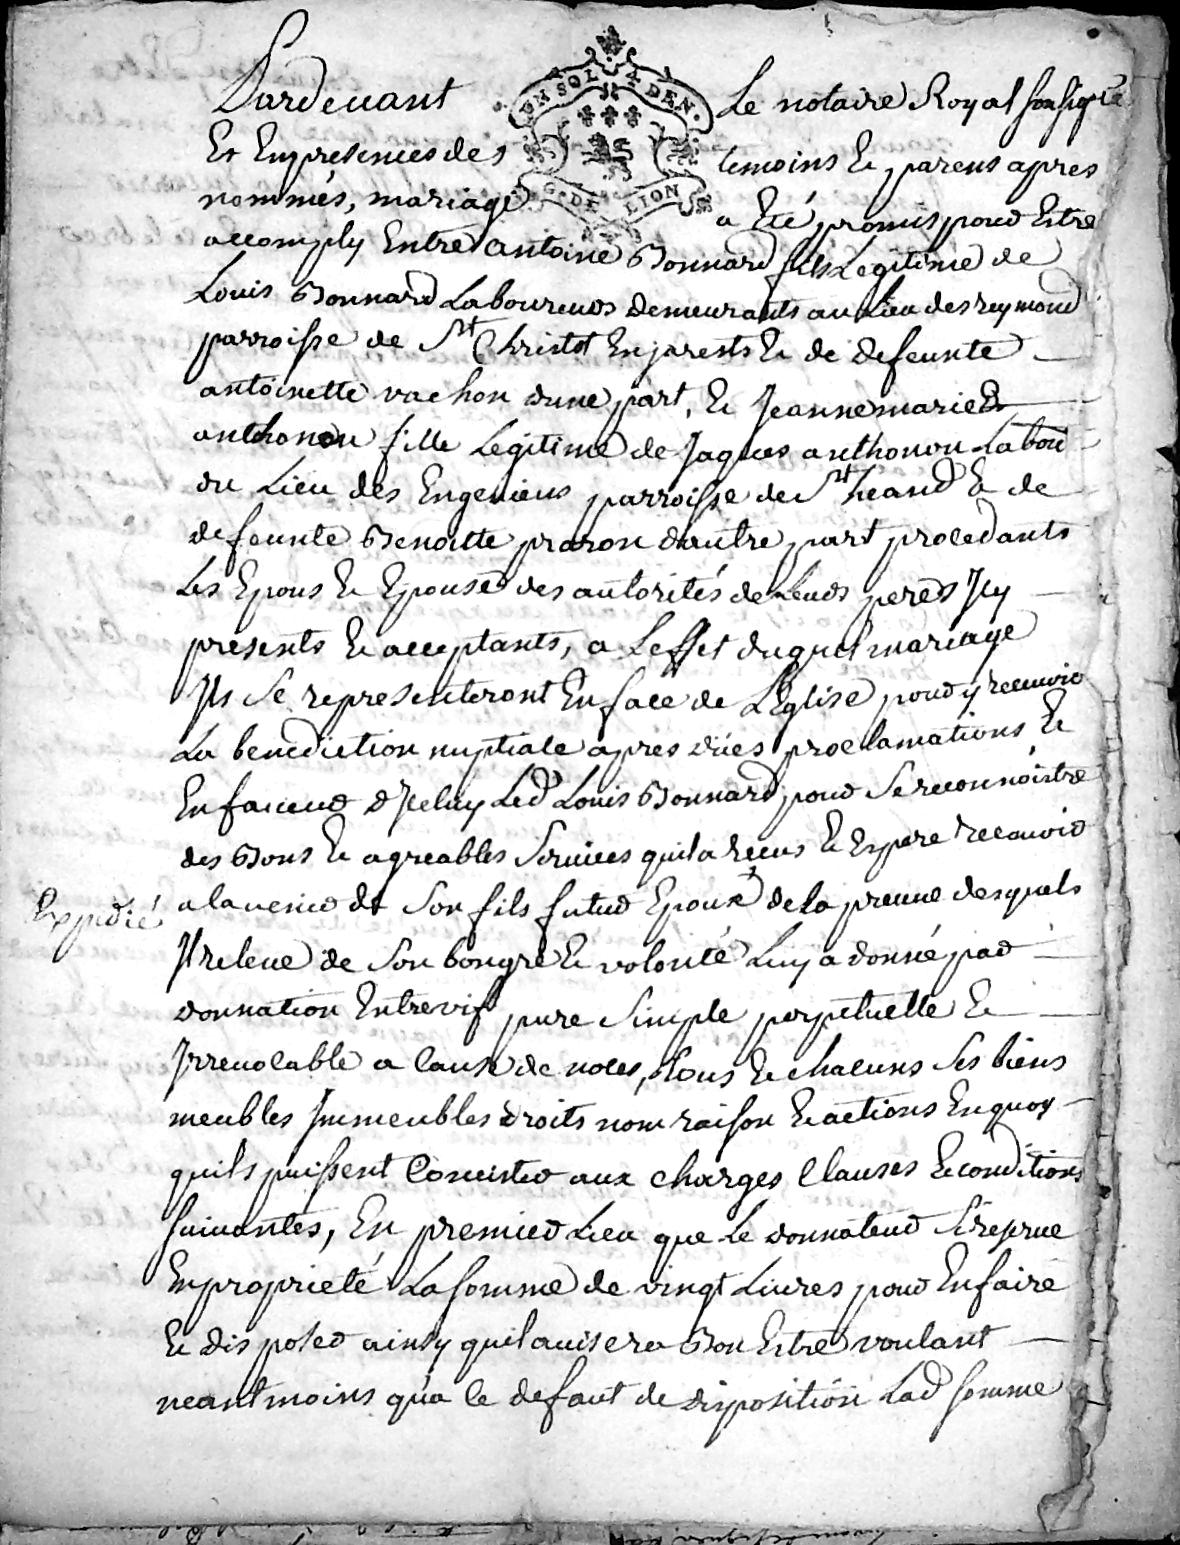 UN SOL. 4 DEN.
G. DE LION
Pardevant Le notaire Royal soussigné
Et Enpresences des temoins & parens apres
nommés, mariage a Eté promis pour Estre
accomply Entre antoine Bonnard fils Legitime de
Louis Bonnard Laboureurs demeurants au Lieu des reymond
parroisse de St Christot En jarests & de defeunte
antoinette vachon dune part, & Jeannemarie
anthonou fille Legitime de Jaques anthonou Labour
du Lieu des Engenieux parroisse de St heand & de
defeunte Benoitte praron dautre part procedants
Les Epous & Epouse des autorités de Leurs peres Jcy
presents & acceptants, a Leffet duquel mariage
Jls Se representeront En face de LEglise pour y recevoir
La benediction nuptiale apres dües proclamations, &
En faveur dJceluy Led Louis Bonnard pour Se reconnoistre
des Bons & agreables Services quil a recus & Espere recevoir
a lavenir de Son fils futur Epoux de la preuve desquels
Expedié
Jl releve de Son bongré & volonté Luy a donné par
donnation Entrevif pure Simple perpetuelle &
Jrrevocable a cause de noces, Tous & chacuns Ses biens
meubles Jmmeubles droits nom raison & actions En quoy
quils puissent Concister aux charges Clauses & conditions
suivantes, En premier Lieu que Le donnateur Se reserve
En proprieté La somme de vingt Livres pour En faire
& disposer ainsy quil avisera Bon Estre voulant
neantmoins qua le defaut de disposition Lad somme